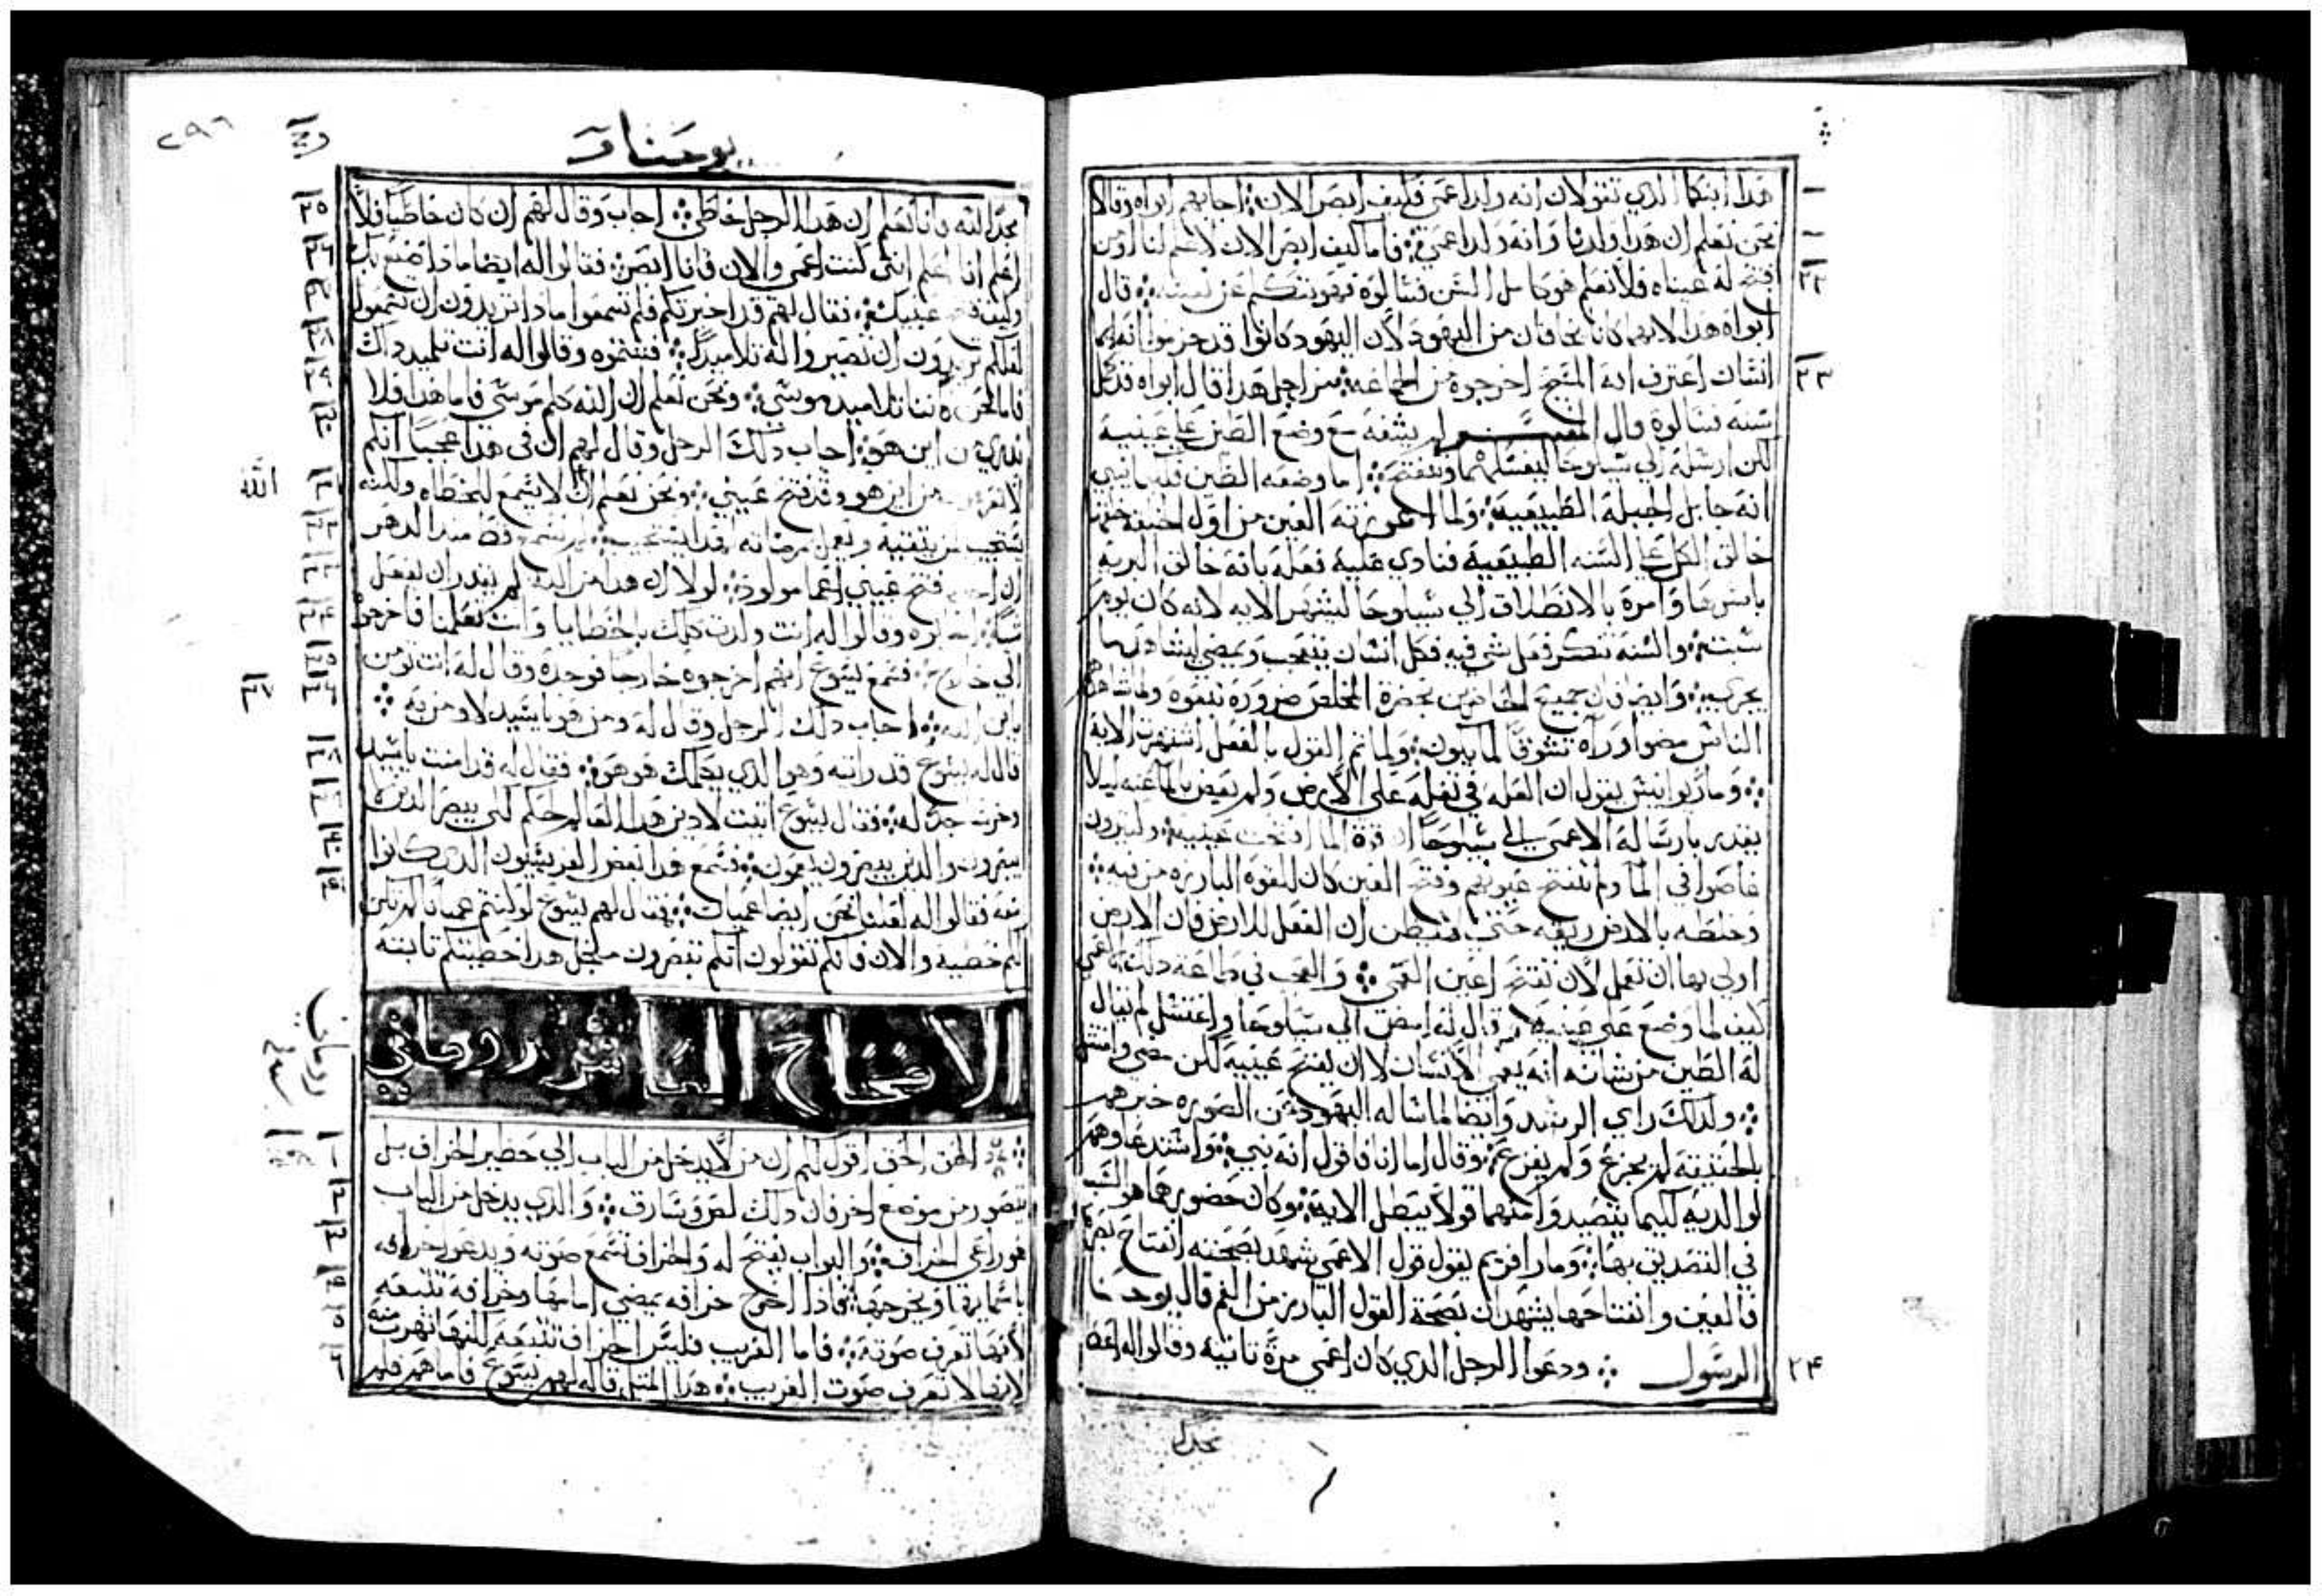 هدا ابنكما الدي تقولان انه ولد اعمى فكيف ابصر الان ؞ اجابهم ابواه وقالا
نحن نعلم ان هدا ولدنا وانه ولد اعمى ؞ فاما كيف ابصر الان لا علم لنا او من
فتح له عيناه فلا نعلم هو كامل السن فسالوه فهو يتكلم عن نفسه ؞ قال
ابواه هدا لانهما كانا يخافان من اليهود لان اليهود كانوا قد جزموا انه ايما
انسان اعترف انه المسيح اخرجوه من الجماعة ؞ من اجل هدا قال ابواه قد كمل
سنه فسالوه قال المفسر لم يشفه مع وضع الطين على عينيه
لكن ارسله الى شيلوحا ليغسلهما وتنفتح ؞ اما وضعه الطين فلكيما نبين
انه جابل الجبلة الطبيعية ؞ ولما اعوزته العين من اول
خالق الكل على السنه الطبيعية فنادى عليه فعله بانه خالق البرية
باسرها وامره بالانطلاق الى شيلوحا لتشهر الايه لانه كان يوم
سبت ؞ والسنه تنكر فعل شى فيه فكل انسان يتعجب ويمضي ليشاهد بما
يجري ؞ وايضا فان جميع الحاضرين بحضرة المخلص ضرورة تتبعوه
الناس مضوا وراه تشوقا لما يكون ؞ ولما تم القول بالفعل اشتهرت الاية
؞ وماريوانيس يقول ان العله في تفله على الارض ولم يعض بالما عنه ليلا
يفتدى بارساله الاعمى الى شيلوحا ان قوة الما افتحت عينيه ؞ وكثيرون
غاصوا في الما ولم تنفتح عيونهم وفتح العين كان للقوة البارزه من فيه ؞
وخلطه بالارض ريقه حتى لا يظن ان الفعل للارض فان الارض
اولى بها ان تعمل لان تفتح اعين العمي ؞ والعجب في طاعة دلك الاعمى
كيف لما وضع على عينيه وقال له امض الى شيلوحا واغتسل لم يقال
له الطين من شانه انه يعمي الانسان لا ان يفتح عينيه لكن مضى وامتثل
؞ ولدلك راي الرشيد وايضا لما ساله اليهود عن الصوره خبرهم
بالحقيقه لم يجزع ولم يفزع ؞ وقال اما انا فاقول انه نبي ؞ واستدعاوهم
لوالديه كيما يتصيدوا منهما قولا يبطل الاية ؞ وكان حضورهما هو السبب
في التصديق بها ؞ ومار افريم يقول قول الاعمى شهد بصحته انفتاح
فالعين وانفتاحها يشهدان بصحة القول البارز من الفم قال يوحنا
الرسول ؞ ودعوا الرجل الدي كان اعمى مرة تانية وقالوا له اعط
٢٤
مجدا
يوحنا
٢٩٦
مجدا لله فانا نعلم ان هدا الرجل خاطى ؞ اجاب وقال لهم ان كان خاطيا فلا
اعلم انا اعلم انني كنت اعمى والان فانا ابصر ؞ فقالوا له ايضا مادا صنع بك
وكيف فتح عينيك ؞ فقال لهم قد اخبرتكم فلم تسمعوا مادا تريدون ان تسمعوا
لعلكم تريدون ان تصيروا له تلاميدا ؞ فشتموه وقالوا له انت تلميد داك
فاما نحن فاننا تلاميد موسى ؞ ونحن نعلم ان الله كلم موسى فاما هدا فلا
ندري من اين هو ؞ اجاب دلك الرجل وقال لهم ان في هدا عجبا انكم
لا تعرفون من اين هو وقد فتح عيني ؞ ونحن نعلم ان الله لا يسمع للخطاه ولكنه
يستجيب لمن يتقيه ويعمل مرضاته لهدا يستجيب ؞ لم يسمع قط مند الدهر
ان احدا فتح عيني اعما مولود ؞ لولا ان هدا من الله لم يقدر ان يفعل
شيا ؞ اجابوه وقالوا له انت ولدت كلك بالخطايا وانت تعلمنا فاخرجوه
الى خارج ؞ فسمع يسوع انهم اخرجوه خارجا فوجده وقال له انت تومن
بابن الله ؞ اجاب دلك الرجل وقال له ومن هو يا سيد لاومن به ؞
قال له يسوع قد رايته وهو الدي يكلمك هو هو ؞ فقال له قد امنت يا سيد
وخر ساجدا له ؞ فقال يسوع اتيت لادين هدا العالم حكم لكي يبصر الدين لا
يبصرون والدين يبصرون يعمون ؞ فسمع هدا بعض الفريسيون الدي كانوا
معه فقالوا له لعلنا نحن ايضا عميان ؞ فقال لهم يسوع لو كنتم عميانا لم تكن
لكم خطية والان فانكم تقولون انكم تبصرون من اجل هدا خطيتكم تابتة
الافتتاح العاشر روماني
؞ الحق الحق اقول لكم ان من لا يدخل من الباب الى حضير الخراف بل
يتصور من موضع اخر فان دلك لص وسارق ؞ والدي يدخل من الباب
فهو راعي الخراف ؞ والبواب يفتح له والخراف تسمع صوته ويدعو خرافه
باسمايها ويخرجها ؞ فادا اخرج خرافه يمضي امامها وخرافه تتبعه
لانها تعرف صوته ؞ فاما الغريب فليس الخراف تتبعه لكنها تهرب منه
لانها لا تعرف صوت الغريب ؞ هدا المتل قاله لهم يسوع فاما هم فلم
الله